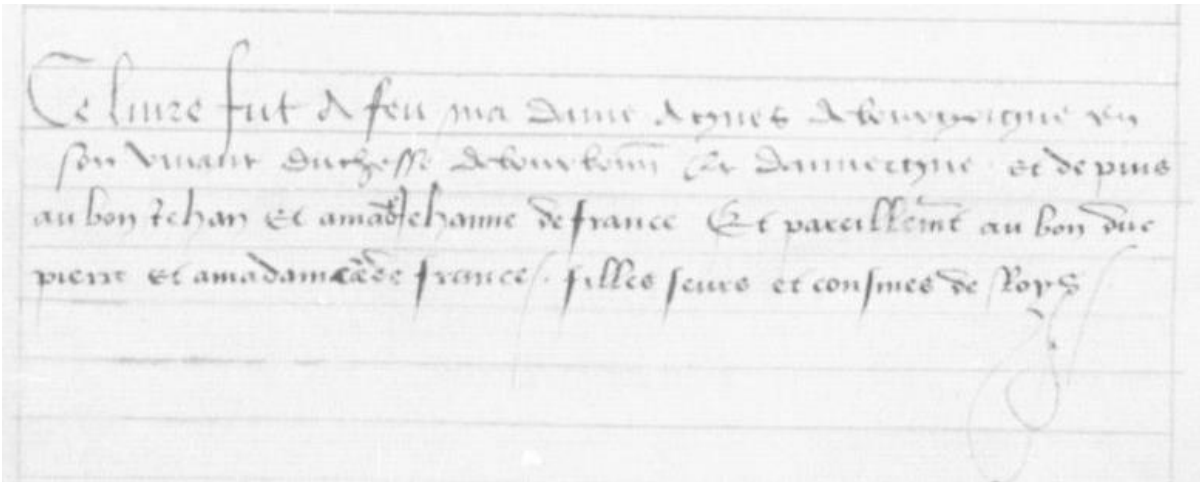 Ce livre fut de feu ma dame Agnes de bourgoigne en
son vivant duchesse de bourbonn Et dauvergne et depuis
au bon Jehan Et a mad Jehanne de france Et pareillemt au bon duc
pierre et a madame de france filles seurs et cousines de Roys